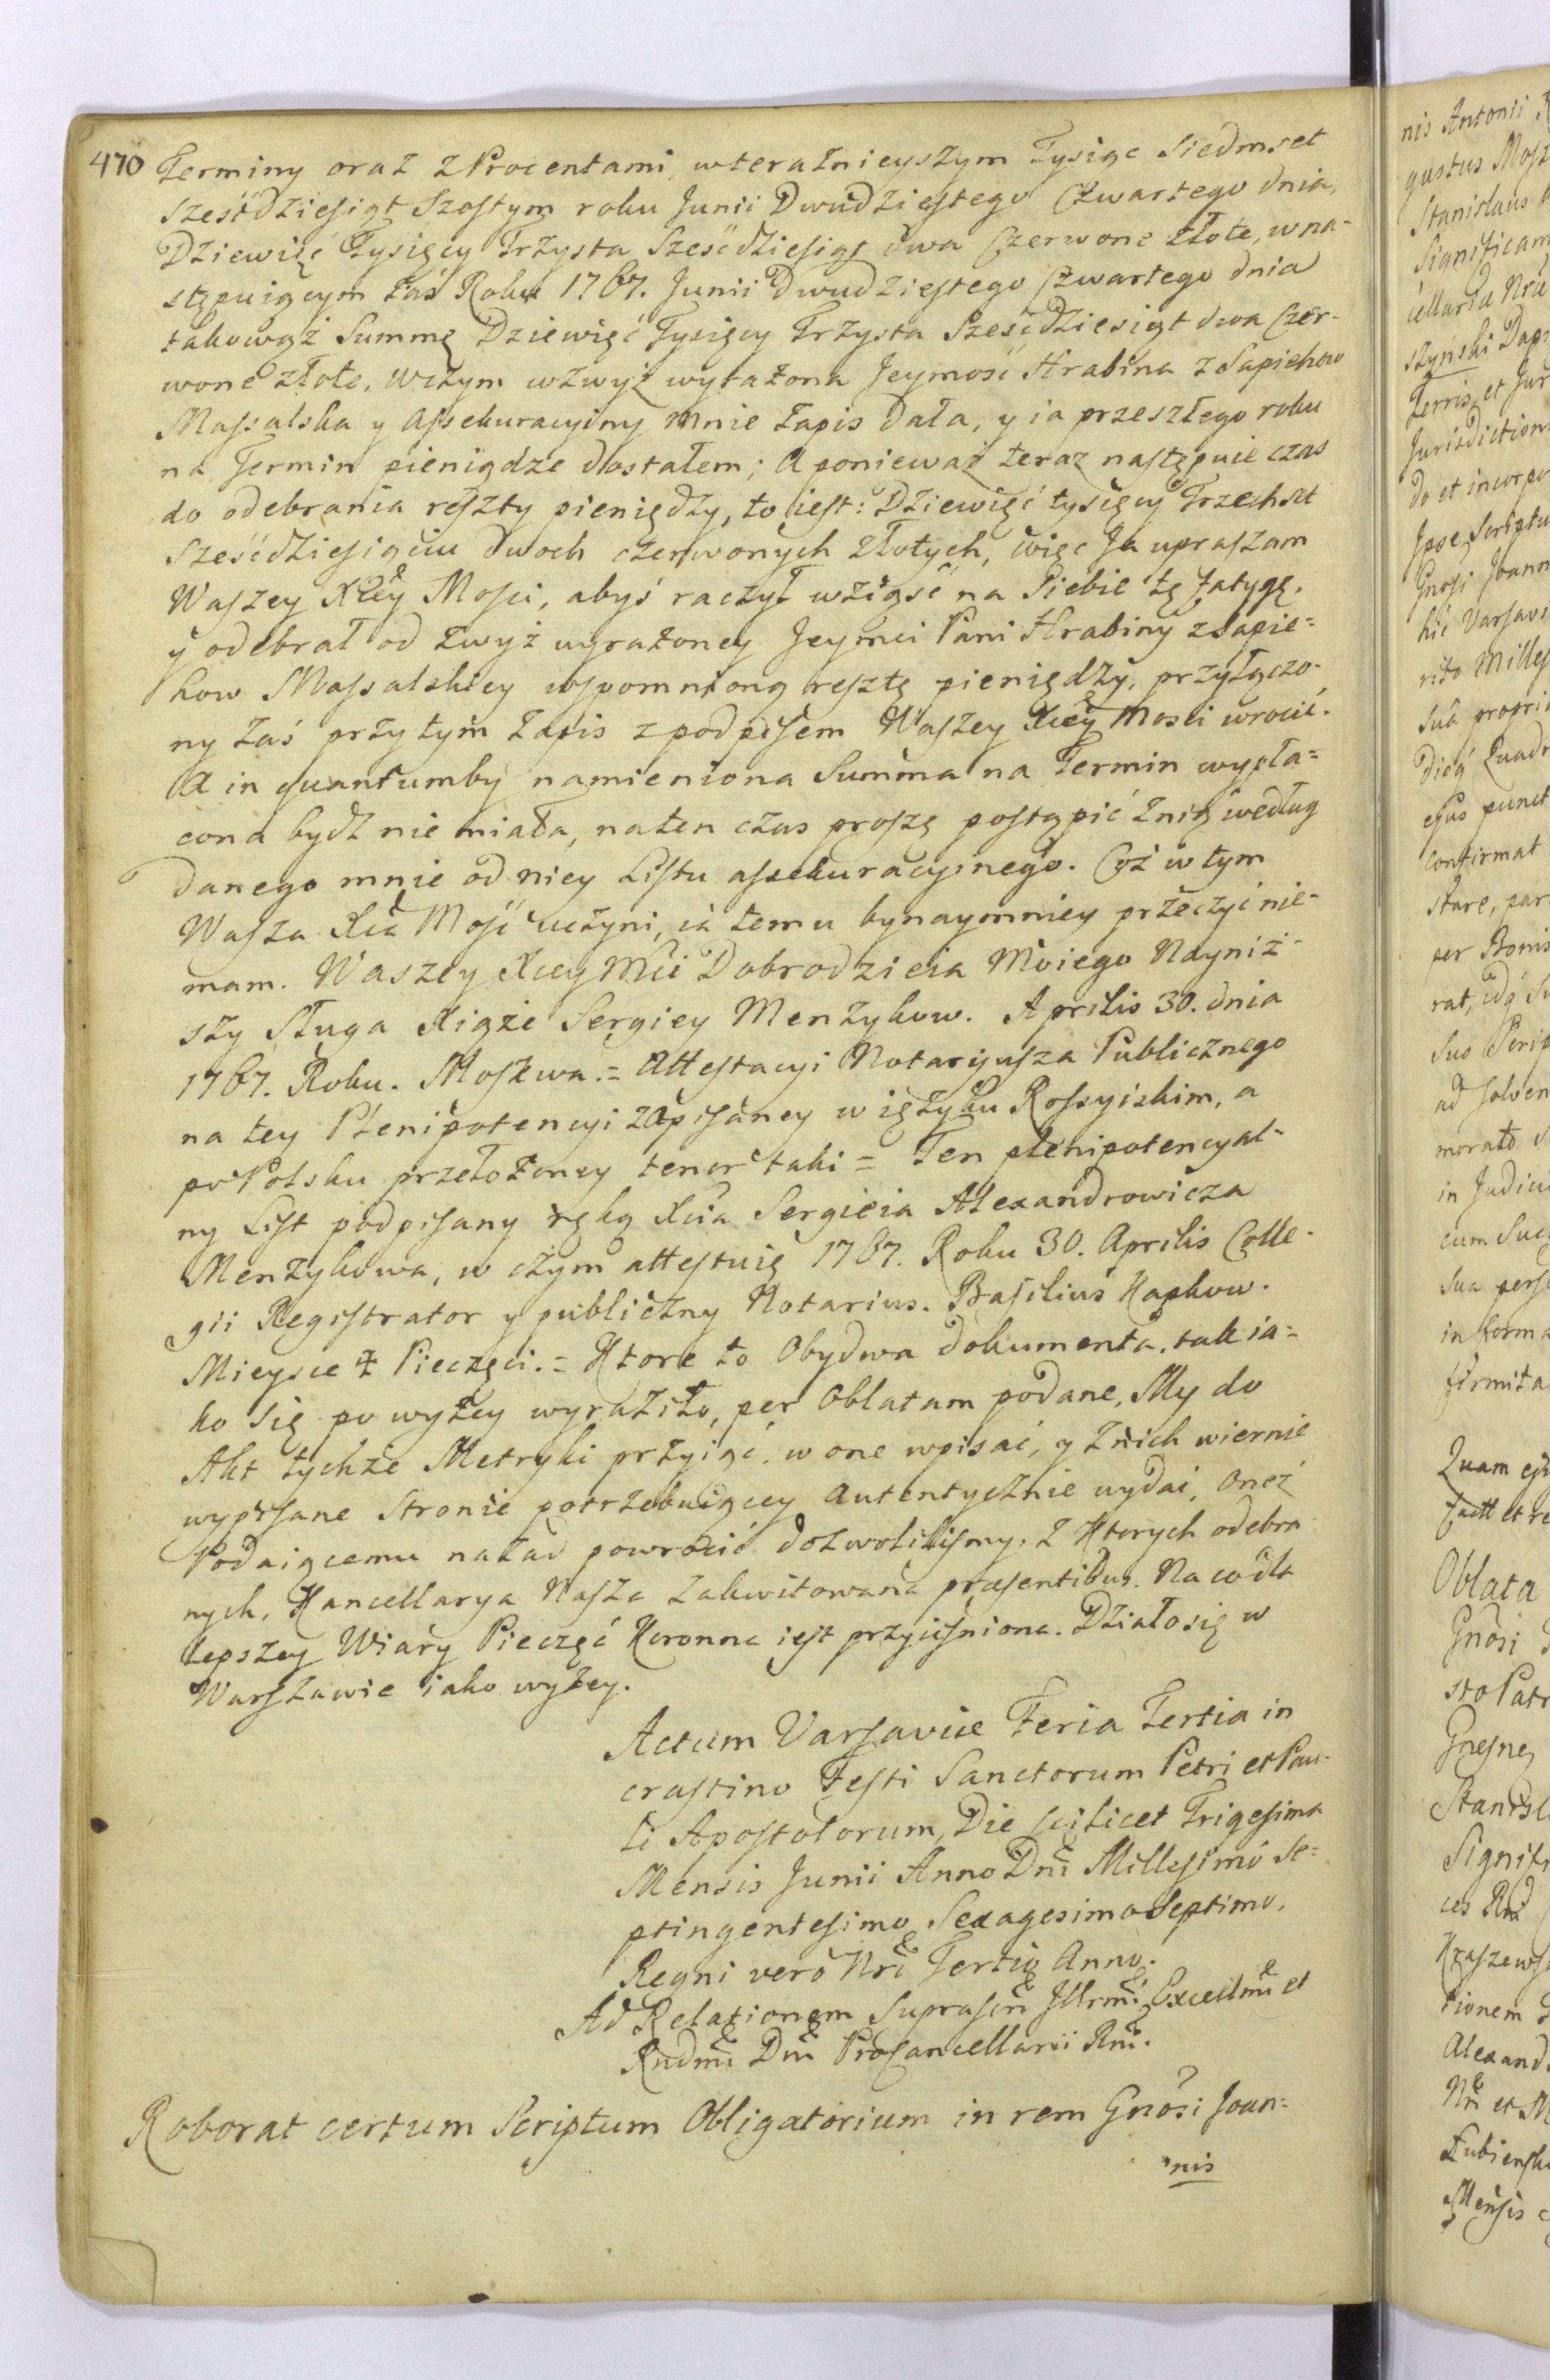 470 Terminy oraz z Procentami, w teraznieyszym Tysiąc Siedmset
szesćdziesiąt Szostym roku Junii Dwudziestego Czwartego dnia,
Dziewięć Tysięcy Trzysta Szesćdziesiąt dwa Czerwone złote, w na-
stępuiącym zaś Roku 1767. Junii Dwudziestego Czwartego dnia
takowąż Summę Dziewięć Tysięcy Trzysta Sześćdziesiąt dwa Czer-
wone złote, w czym wzwyż wyrazona Jeymość Hrabina z Sapiehow
Massalska y Assekuracyiny mnie zapis dała, y ia przeszłego roku
na Termin pieniądze dostałem; A ponieważ teraz następuie czas
do odebrania reszty pieniędzy, to iest: Dziewięć tysięcy Trzechset
Sześćdziesięciu dwoch czerwonych złotych, więc Ja upraszam
Waszey Xcey Mosci, abyś raczył wziąść na Siebie tę fatygę,
y odebrał od zwyż wyrazoney Jeymci Pani Hrabiny z Sapie=
how Massalskiey wspomnioną resztę pieniędzy, przyłączo-
ny zaś przytym zapis z podpisem Waszey Xcey Mosci wrocić.
A in quantumby namieniona Summa na Termin wypła=
cona bydz nie miała, na ten czas proszę postąpić z nią według
danego mnie od niey Listu assekuracyinego. Coż w tym
Wasza Xca Mość uczyni, ia temu bynaymniey przeczyć nie-
mam. Waszey Xcey Mci Dobrodzieia Moiego Nayniż-
szy Sługa Xiąże Sergiey Menzykow. Aprilis 30. dnia
1767. Roku. Moskwa.= Attestacyi Notaryusza Publicznego
na tey Plenipotencyi zapisaney w ięzyku Rossyiskim, a
po Polsku przełożoney tenor taki = Ten plenipotencyal-
ny List podpisany ręką Xcia Sergieia Alexandrowicza
Menzykowa, w czym attestuię 1767. Roku 30. Aprilis Colle-
gii Registrator y publiczny Notarius. Basilius Kapkow.
Mieysce ‡ Pieczęci.= Ktore to Obydwa dokumenta, tak ia=
ko się po wyżey wyraziło, per Oblatam podane, My do
Akt tychże Metryki przyiąć, w one wpisać, y z nich wiernie
wypisane Stronie potrzebuiącey Autentycznie wydać, oneż
Podaiącemu nazad powrocić dozwoliliśmy, z Ktorych odebra-
nych, Kancellarya Nasza zakwitowana præsentibus. Na co dla
lepszey Wiary Pieczęć Koronna iest przyciśniona. Działo się w
Warszawie iako wyżey.
Actum Varsaviæ Feria Tertia in
crastino Festi Sanctorum Petri et Pau-
li Apostolorum, Die scilicet Trigesima
Mensis Junii Anno Dni Millesimo Se=
ptingentesimo Sexagesimo Septimo,
Regni vero Nri Tertio Anno.
Ad Relationem Suprascri Illrmi Excellmi et
Rndmi Dni Procancellarii Rni.
Roborat certum Scriptum Obligatorium in rem Gnosi Joan=
nis
nis Antonii
gustus
Stanislaus
Significam
cellaria Nra
szyński
Terris, et Jur
Jurisdiction
do et incorpo
Ipse Scriptu
Gnosi Joann
hic Varsav
Milles
sua propri
Quadr
ejus punct
confirmat
stare, par
per Bonis
rat,
suo Scrip
ad solven
in Judici
cum
sua
in forma
firmita
Quam
Oblata
Gnosi
sto Patr
Gnesne
Stanisl
Signifi
ces
Kraszews
tionem
Alexand
Nri et M
Łubiensk
Mensis